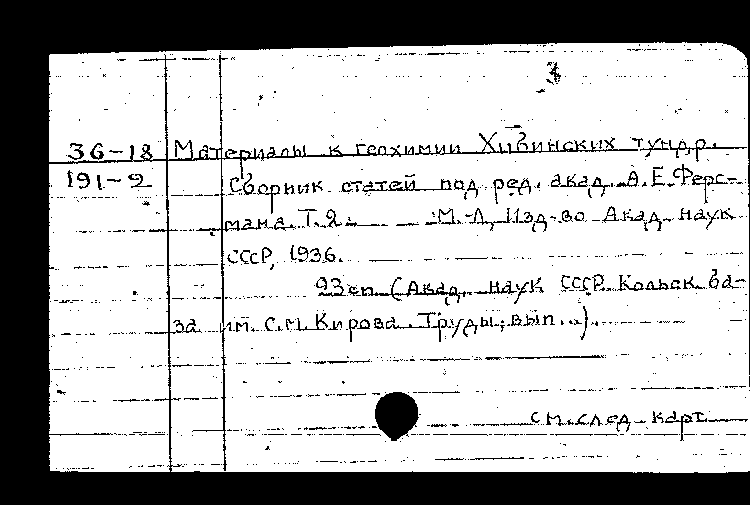 3
36-18 Материалы к геохимии Хибинских тундр.
191-2 Сборник статей под ред. акад. А.Е.Ферс-
мана. Т. М.-Л, Изд-во Акад. наук
СССР, 1936.
93 сп (Акад. наук СССР. Кольск. ба-
за им. С.М. Кирова. Труды, вып. ..).
см. след. карт.